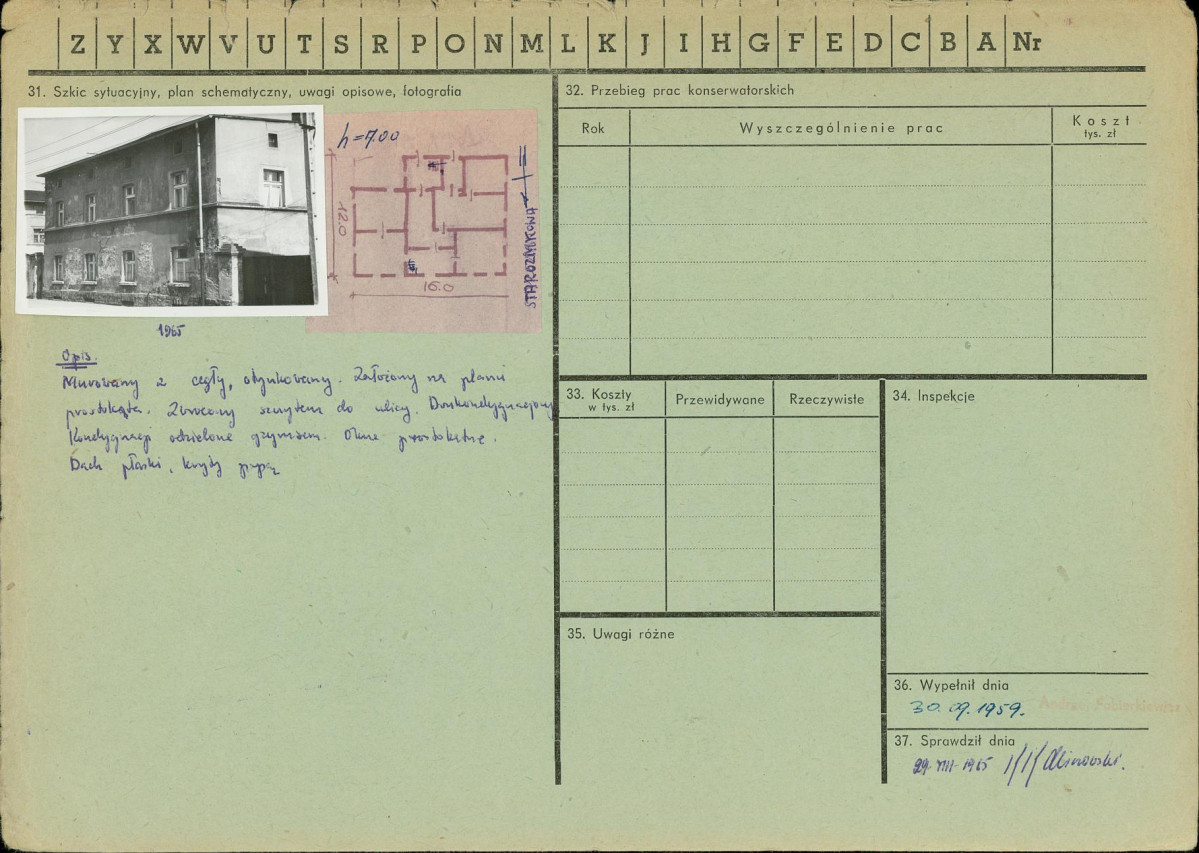 Z Y X W V U T S R P O N M L K J I H G F E D C B A Nr
31. Szkic sytuacyjny, plan schematyczny, uwagi opisowe, fotografia
h=7.00
12.0
16.0
STAROZAMKOWA
1965
Opis.
Murowany z cegły, otynkowany. Założony na planie
prostokąta. Zwrócony szczytem do ulicy. Dwukondygnacjowy
Kondygnacje oddzielone gzymsem. Okna prostokątne.
Dach płaski, kryty papą
32. Przebieg prac konserwatorskich
Rok
Wyszczególnienie prac
Koszt
tys. zł
33. Koszty
w tys. zł
Przewidywane
Rzeczywiste
34. Inspekcje
35. Uwagi różne
36. Wypełnił dnia
30.09.1959.
37. Sprawdził dnia
29. VIII. 1965